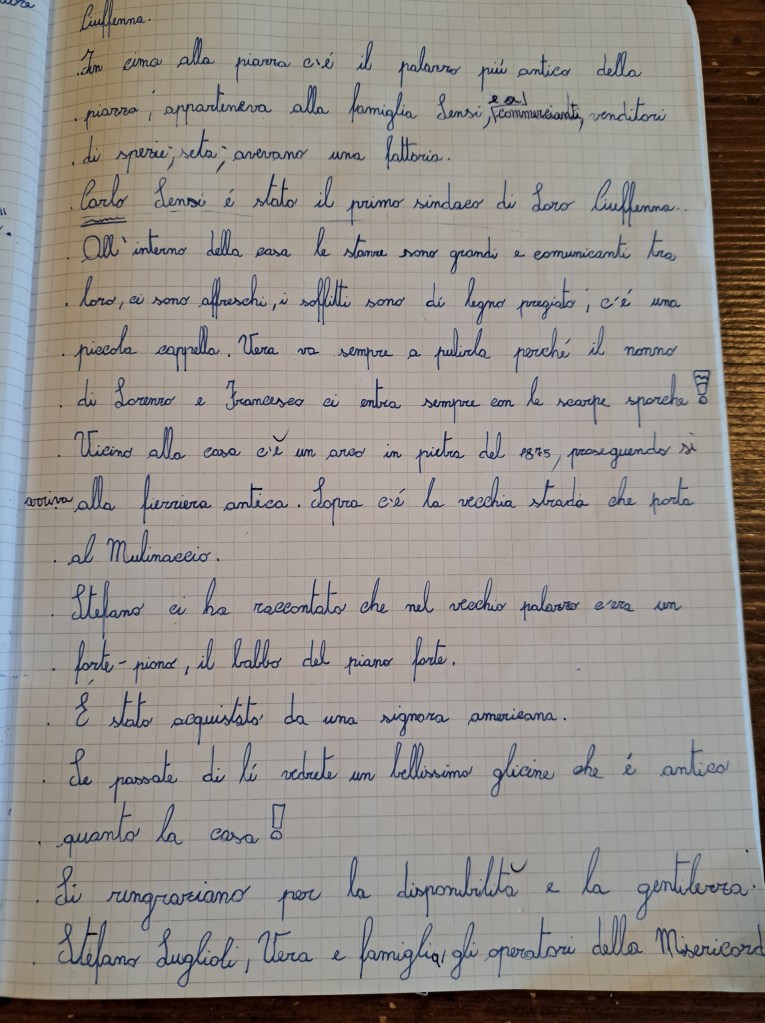 Ciuffenna.
In cima alla piazza c'é il palazzo piú antico della
piazza; apparteneva alla famiglia Sensi, e a commercianti, venditori
di spezie, seta; avevano una fattoria.
Carlo Sensi é stato il primo sindaco di Loro Ciuffenna.
All'interno della casa le stanze sono grandi e comunicanti tra
loro, ci sono affreschi, i soffitti sono di legno pregiato; c'é una
piccola cappella. Vera va sempre a pulirla perché il nonno
di Lorenzo e Francesco ci entra sempre con le scarpe sporche!
Vicino alla casa c'è un arco in pietra del 1875, proseguendo si
arriva alla fierriera antica. Sopra c'é la vecchia strada che porta
al Mulinaccio.
Stefano ci ha raccontato che nel vecchio palazzo c'era un
forte-piano, il babbo del piano forte.
É stato acquistato da una signora americana.
Se passate di lí vedrete un bellissimo glicine che é antico
quanto la casa!
Si rungraziano per la disponibilità e la gentilezza.
Stefano Luglioli, Vera e famiglia, gli operatori della Misericord